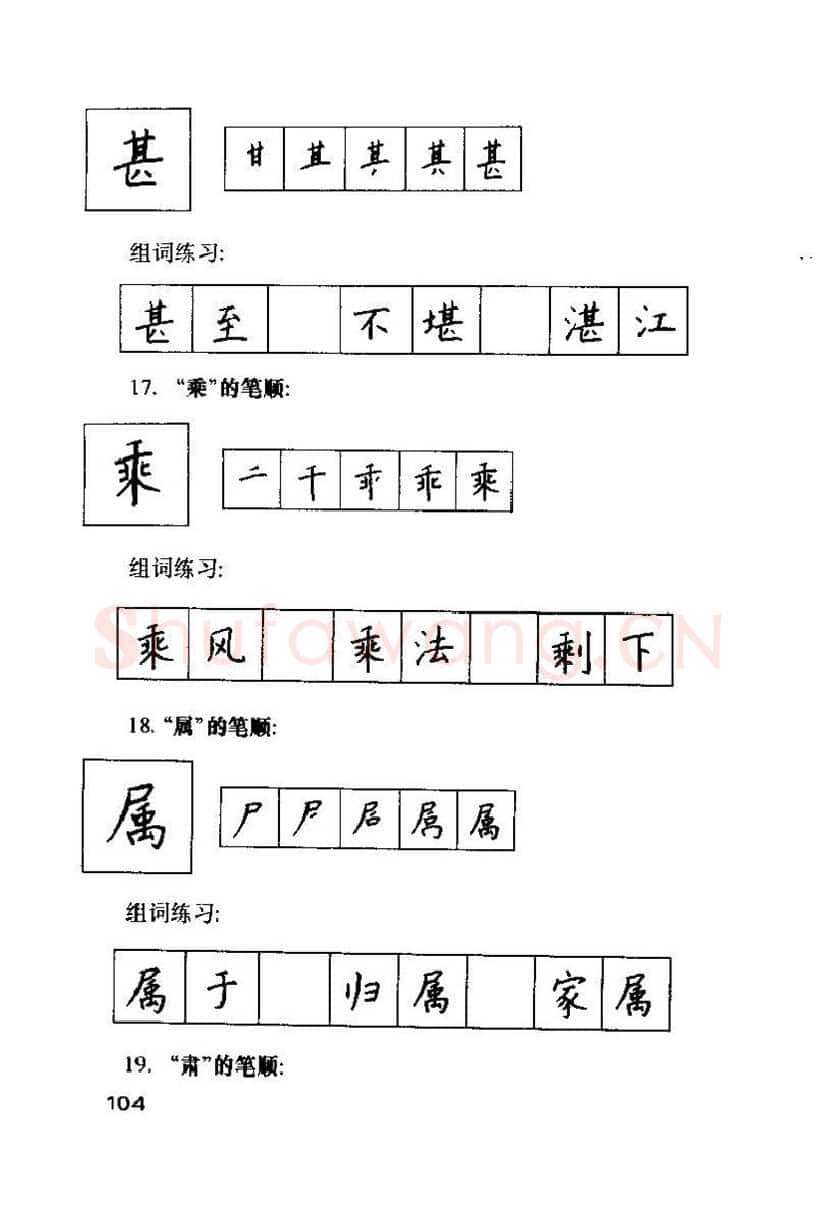 甚 甘 且 其 其 甚
组词练习:
甚 至 不 堪 湛 江
17. “乘”的笔顺:
乘 二 千 乖 乘
组词练习:
乘 风 乘 法 剩 下
Shufawang.CN
18. “属”的笔顺:
属 尸 属
组词练习:
属 于 归 属 家 属
19. “肃”的笔顺:
104